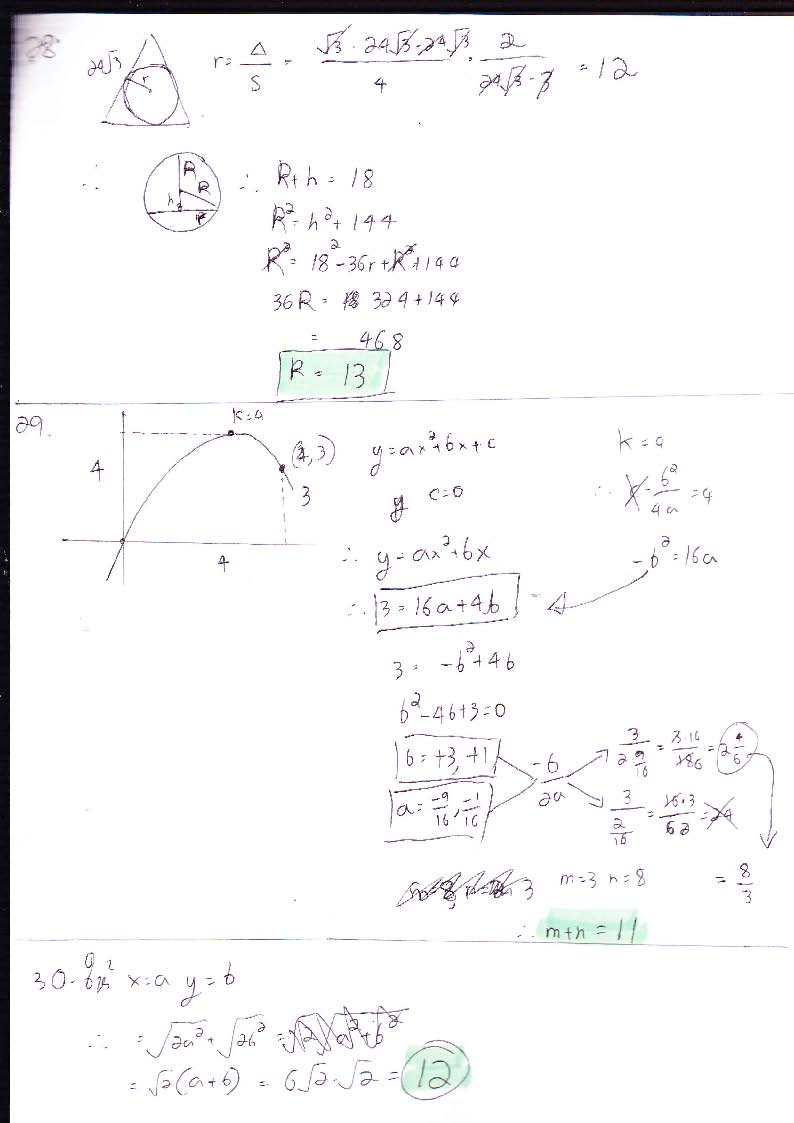 28
24√3 r
r = Δ/S = √3 · 24√3 · 24√3 / 4 · 2 / 24√3 · 3 = 12
∴ R R h r ∴ R + h = 18
R² = h² + 144
R² = 18² - 36r + R² + 144
36R = 324 + 144
= 468
R = 13
29.
k = 4
4
(4, 3)
3
4
y = ax² + bx + c
y c = 0
∴ y = ax² + bx
∴ 3 = 16a + 4b
3 = -b² + 4b
b² - 4b + 3 = 0
b = +3, +1
a = -9/16, -1/16
k = 4
∴ - b²/4a = 4
-b² = 16a
-b/2a
3 / 2 9/16 = 3·16 / 186 = 2 4/6
3 / 2/16 = 16·3 / 2 = 24
= 8/3
m = 3 n = 8
∴ m + n = 11
30. x = a y = b
∴ = √2a² + √2b² = √2 √a² + b²
= √2 (a + b) = 6√2 · √2 = 12